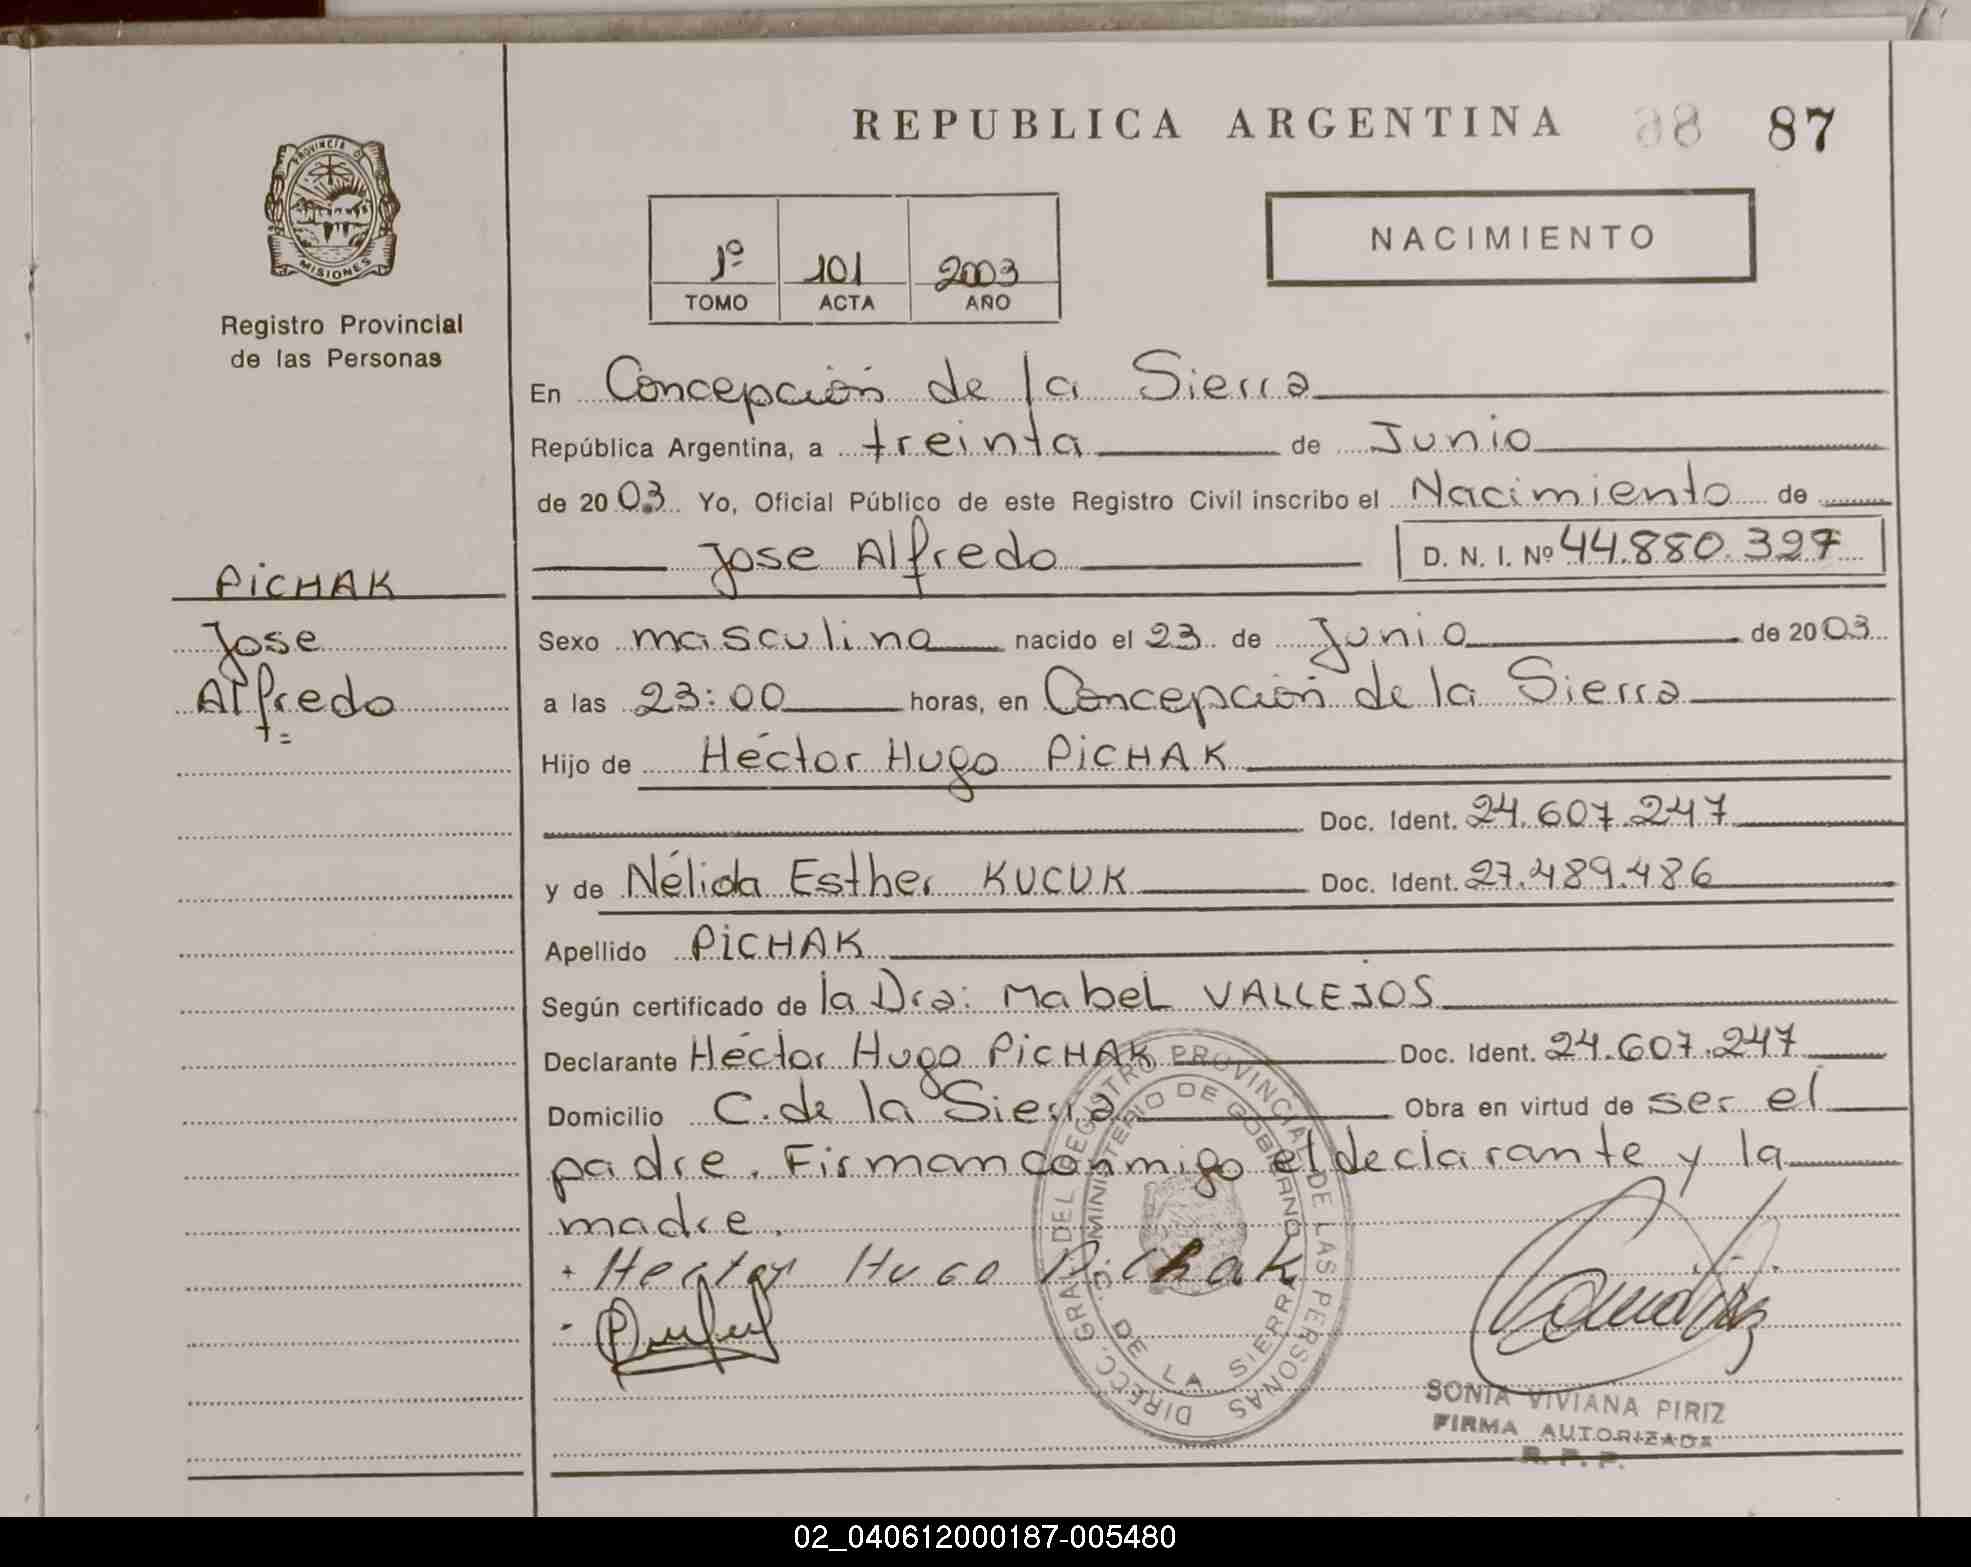 REPUBLICA ARGENTINA 98 87
PROVINCIA D
MISIONES
Registro Provincial
de las Personas
1º 101 2003
TOMO ACTA AÑO
NACIMIENTO
En Concepción de la Sierra
República Argentina, a treinta de Junio
de 2003 Yo, Oficial Público de este Registro Civil inscribo el Nacimiento de
Jose Alfredo D. N. I. Nº 44.880.327
PiCHAK
Jose
Alfredo
Sexo masculino nacido el 23 de Junio de 2003
a las 23:00 horas, en Concepción de la Sierra
Hijo de Héctor Hugo PiCHAK
Doc. Ident. 24.607.247
y de Nélida Esther KUCUK Doc. Ident. 27.489.486
Apellido PiCHAK
Según certificado de la Dra: Mabel VALLEJOS
Declarante Héctor Hugo PiCHAK Doc. Ident. 24.607.247
Domicilio C. de la Sierra Obra en virtud de ser el
padre. Firman conmigo el declarante y la
madre.
Hector Hugo Pichak
DIRECC. GRAL. DEL REGISTRO PROVINCIAL DE LAS PERSONAS
MINISTERIO DE GOBIERNO
C. DE LA SIERRA
SONIA VIVIANA PIRIZ
FIRMA AUTORIZADA
R. P. P.
02_040612000187-005480